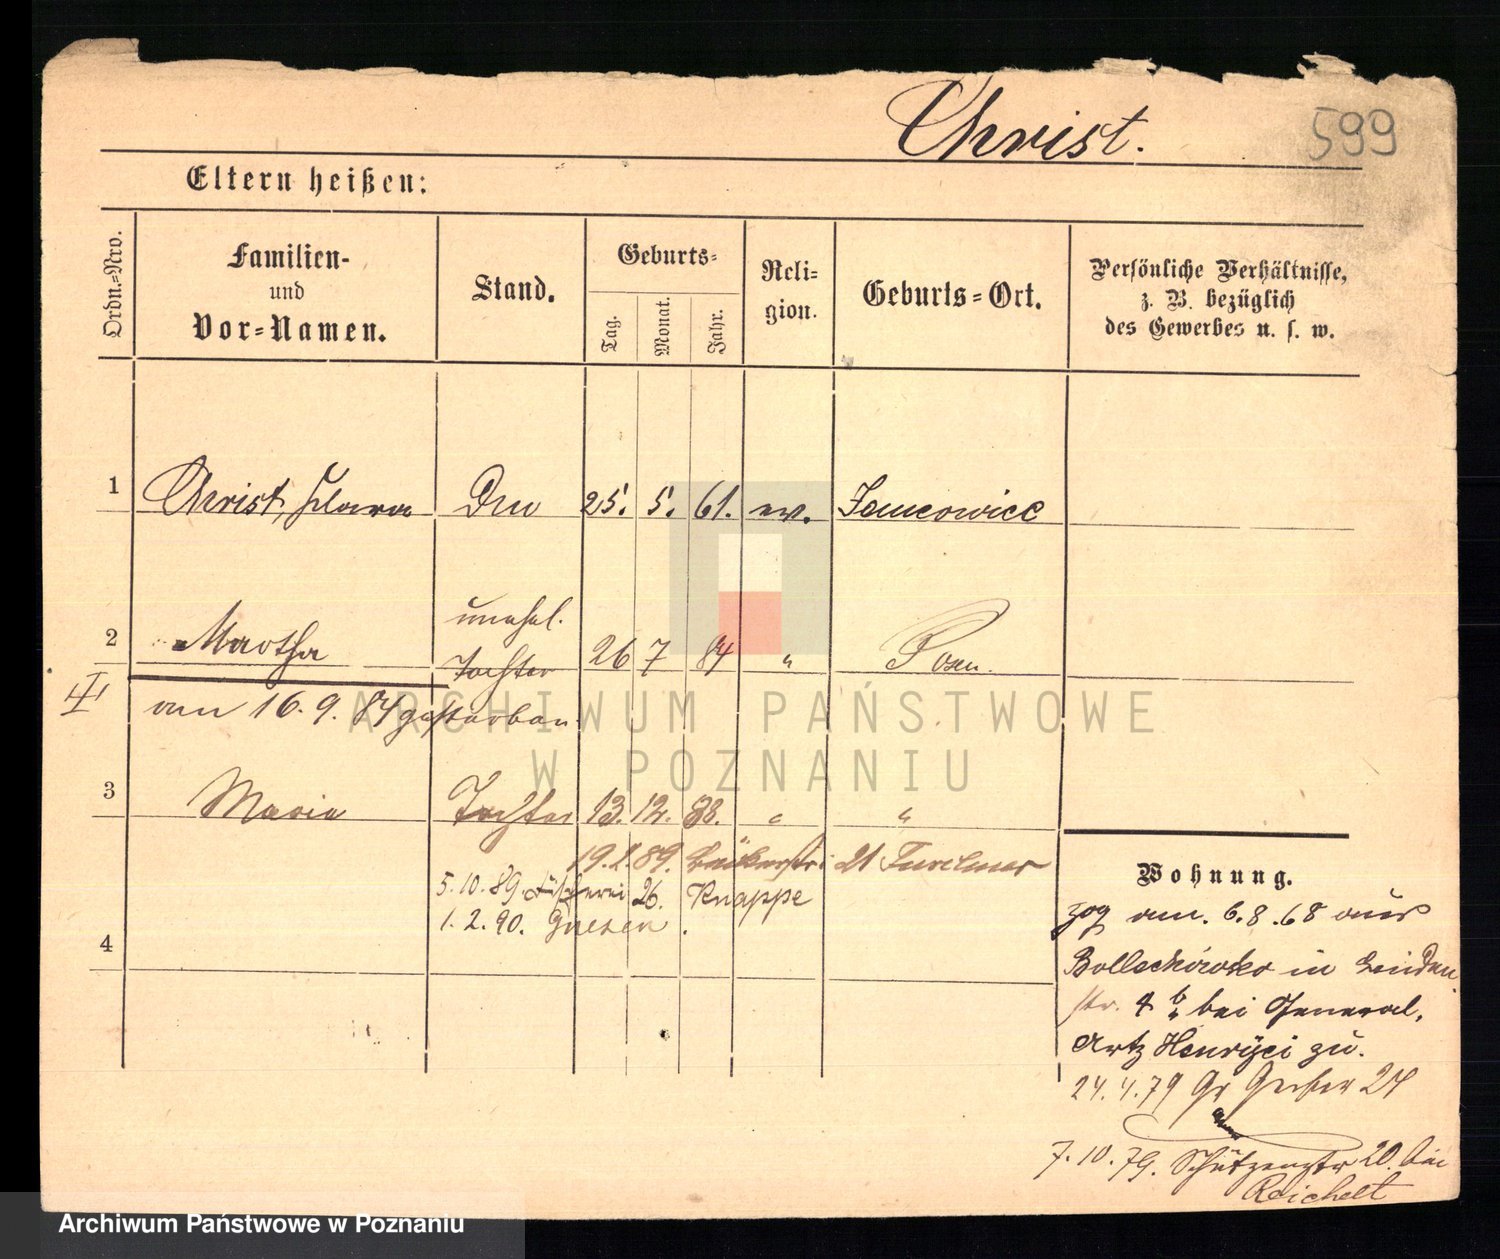 Christ.
599
Eltern heißen:
Ordn.-Nro.
Familien-
und
Vor-Namen.
Stand.
Geburts-
Tag.
Monat.
Jahr.
Reli-
gion.
Geburts-Ort.
Persönliche Verhältnisse,
z. B. bezüglich
des Gewerbes u. s. w.
1 Christ, Clara 25. 5. 61. ev.
unehel.
2 Martha Tochter 26 7 84 " Posen.
am 16. 9. 84 gestorben
ARCHIWUM PAŃSTWOWE
W POZNANIU
3 Maria Tochter 13. 12. 88. " "
19. 2. 89. 21
5. 10. 89. Fischerei 26. Knappe
1. 2. 90. Gnesen.
4
Wohnung.
zog am. 6. 8. 68 aus
in Linden
str. 4 b bei General,
Artz zu.
24. 4. 79 Gr Gerber 24
7. 10. 79. Schützenstr 20. bei
Reichelt
Archiwum Państwowe w Poznaniu